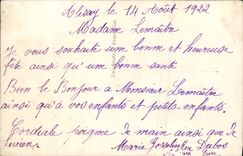 Alizay le 14 Août 1922
Madame Lemaitre
Je vous souhaite une bonne et heureuse
fête ainsi qu'une bonne santé
Bien le Bonjour a Monsieur Lemaitre
ainsi qu'a vos enfants et petits enfants.
Cordiale poigne de main ainsi que de
Lucien
Marie Dubos